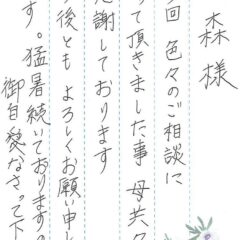 森様
今回 色々のご相談に
って頂きました事 母共々
感謝しております
今後とも よろしくお願い申し
す。猛暑続いておりますの
御自愛なさって下